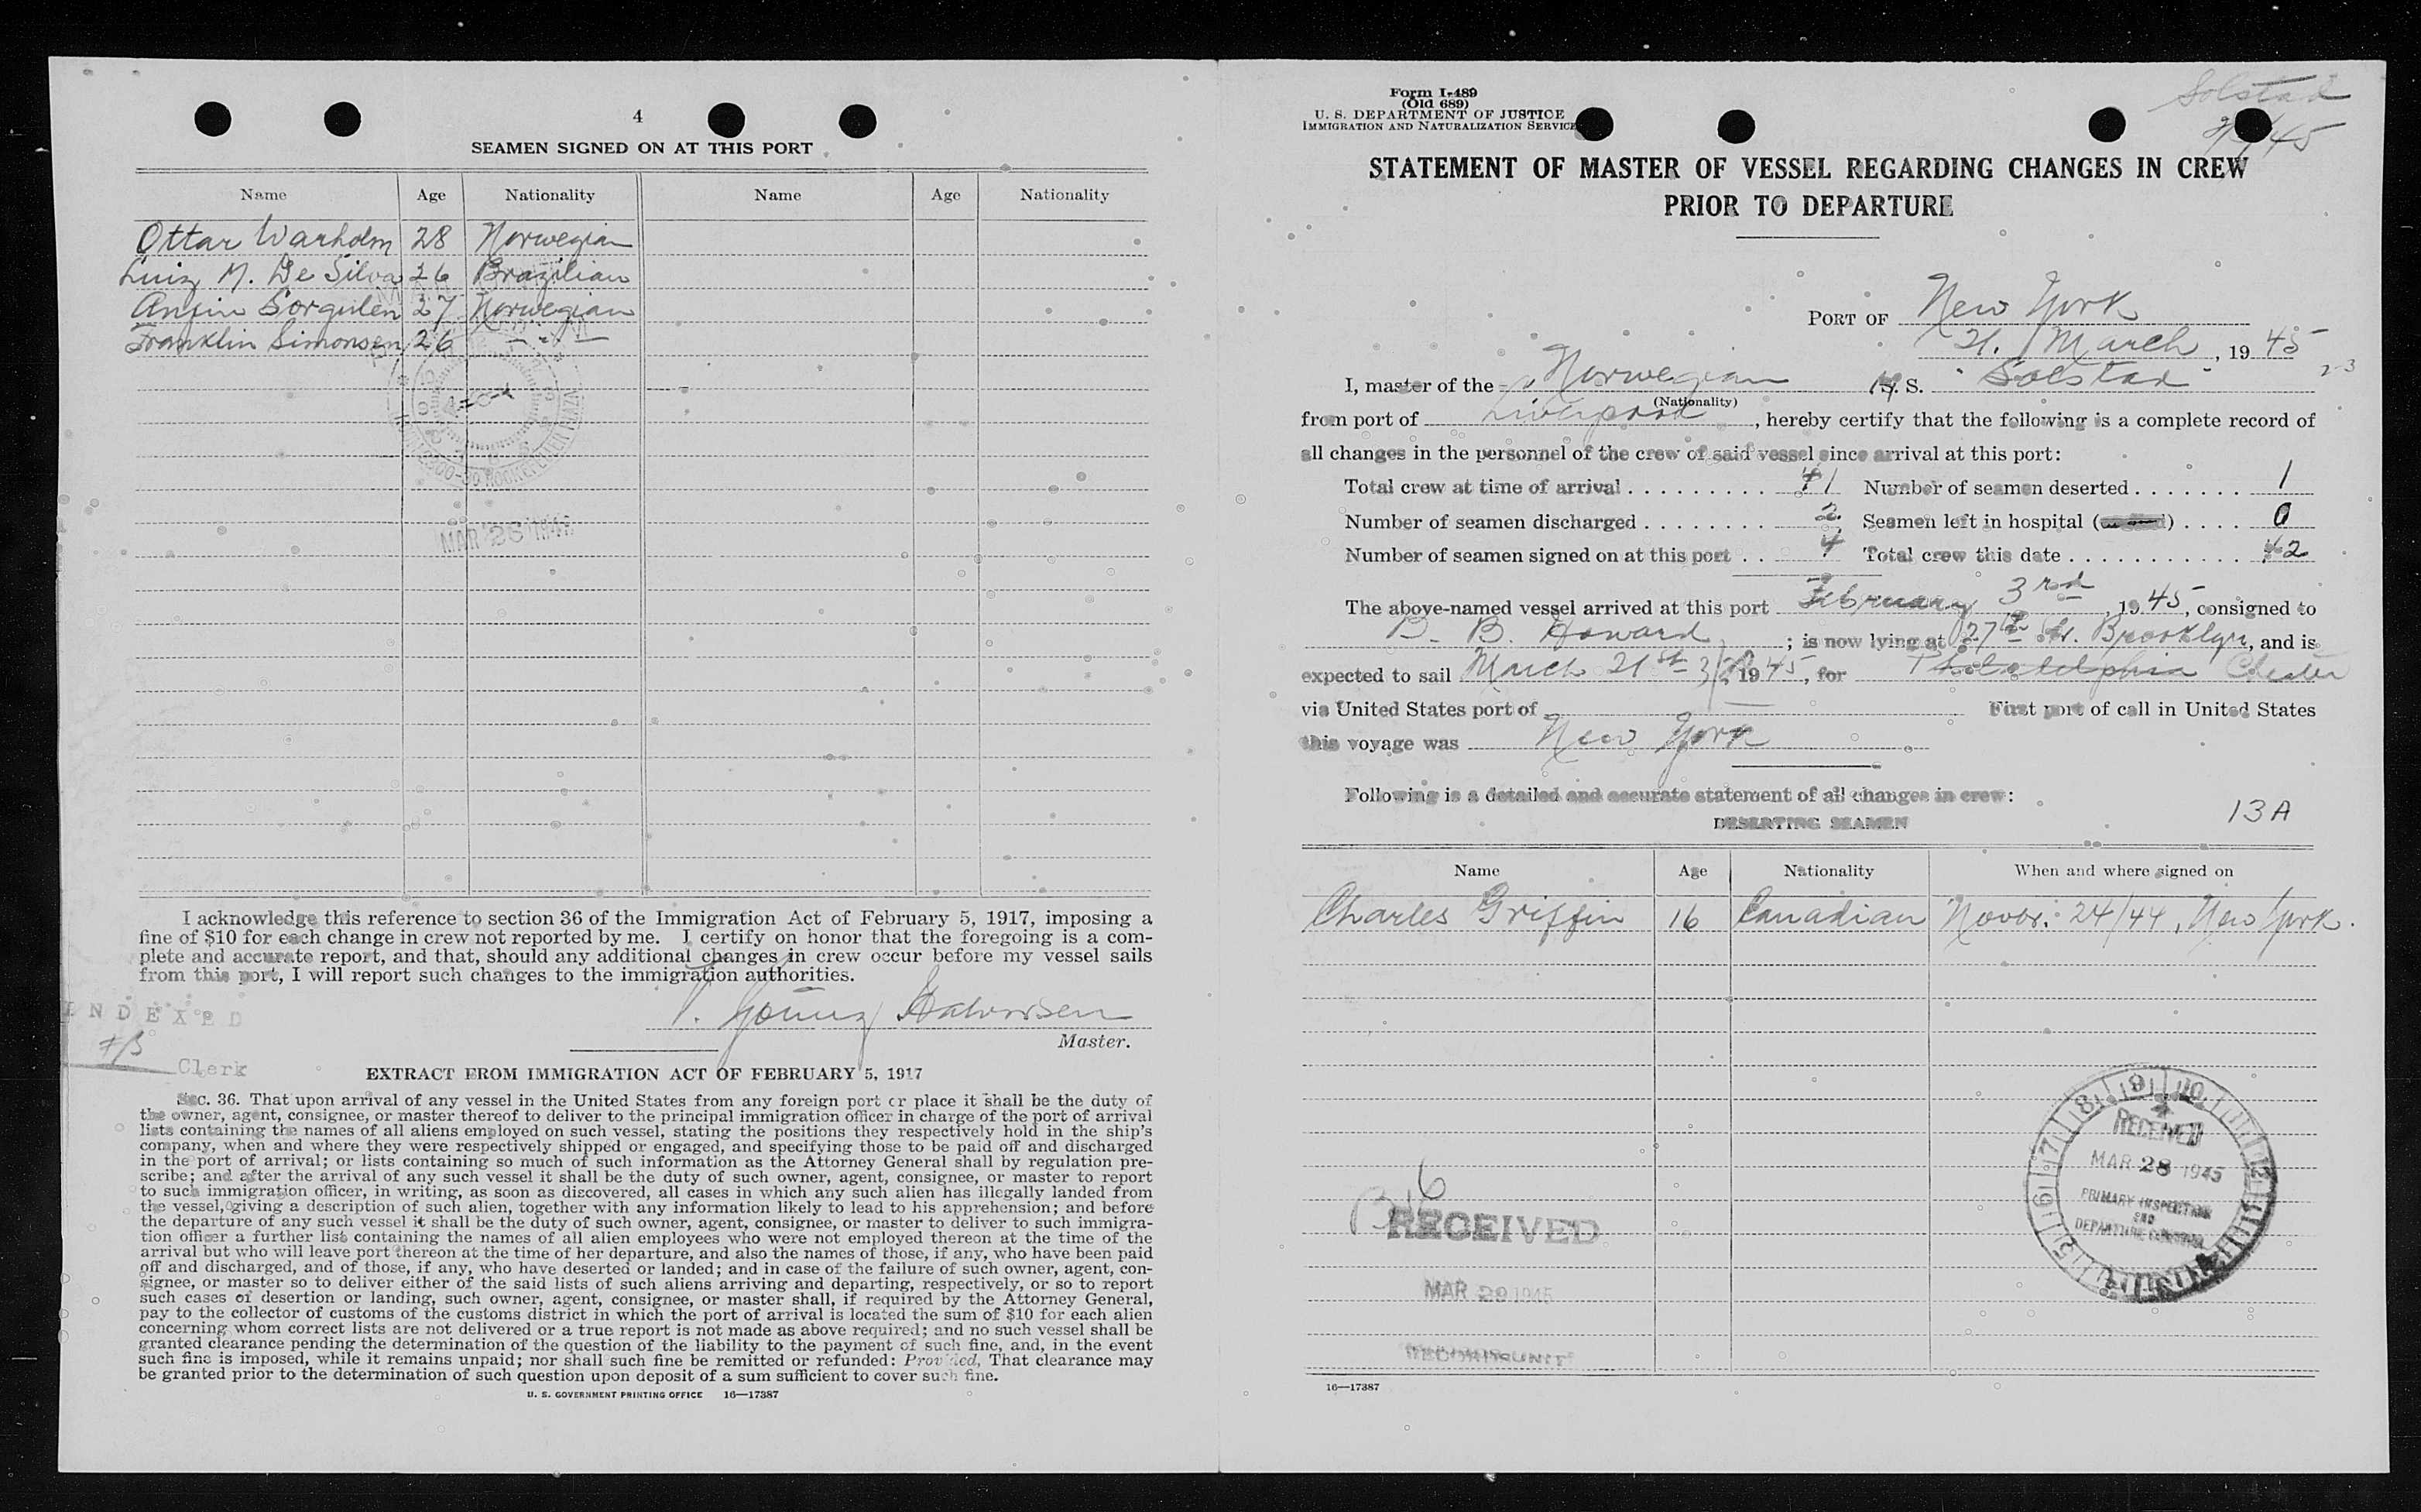 4
SEAMEN SIGNED ON AT THIS PORT
Name Age Nationality Name Age Nationality
Ottar Warholm 28 Norwegian
Luiz M. De Silva 26 Brazilian
Anfin Sorgulen 27 Norwegian
Franklin Simonsen 26 — " —
MAR 26 1945
I acknowledge this reference to section 36 of the Immigration Act of February 5, 1917, imposing a
fine of $10 for each change in crew not reported by me. I certify on honor that the foregoing is a com-
plete and accurate report, and that, should any additional changes in crew occur before my vessel sails
from this port, I will report such changes to the immigration authorities.
INDEXED
Halvorsen
Master.
Clerk
EXTRACT FROM IMMIGRATION ACT OF FEBRUARY 5, 1917
Sec. 36. That upon arrival of any vessel in the United States from any foreign port or place it shall be the duty of
the owner, agent, consignee, or master thereof to deliver to the principal immigration officer in charge of the port of arrival
lists containing the names of all aliens employed on such vessel, stating the positions they respectively hold in the ship's
company, when and where they were respectively shipped or engaged, and specifying those to be paid off and discharged
in the port of arrival; or lists containing so much of such information as the Attorney General shall by regulation pre-
scribe; and after the arrival of any such vessel it shall be the duty of such owner, agent, consignee, or master to report
to such immigration officer, in writing, as soon as discovered, all cases in which any such alien has illegally landed from
the vessel, giving a description of such alien, together with any information likely to lead to his apprehension; and before
the departure of any such vessel it shall be the duty of such owner, agent, consignee, or master to deliver to such immigra-
tion officer a further list containing the names of all alien employees who were not employed thereon at the time of the
arrival but who will leave port thereon at the time of her departure, and also the names of those, if any, who have been paid
off and discharged, and of those, if any, who have deserted or landed; and in case of the failure of such owner, agent, con-
signee, or master so to deliver either of the said lists of such aliens arriving and departing, respectively, or so to report
such cases of desertion or landing, such owner, agent, consignee, or master shall, if required by the Attorney General,
pay to the collector of customs of the customs district in which the port of arrival is located the sum of $10 for each alien
concerning whom correct lists are not delivered or a true report is not made as above required; and no such vessel shall be
granted clearance pending the determination of the question of the liability to the payment of such fine, and, in the event
such fine is imposed, while it remains unpaid; nor shall such fine be remitted or refunded: Provided, That clearance may
be granted prior to the determination of such question upon deposit of a sum sufficient to cover such fine.
U. S. GOVERNMENT PRINTING OFFICE 16—17387
Solstad
Form I-489
(Old 689)
U. S. DEPARTMENT OF JUSTICE
IMMIGRATION AND NATURALIZATION SERVICE
STATEMENT OF MASTER OF VESSEL REGARDING CHANGES IN CREW
PRIOR TO DEPARTURE
PORT OF New York
21. March, 1945
I, master of the Norwegian M. S. "Solstad"
(Nationality)
from port of Liverpool, hereby certify that the following is a complete record of
all changes in the personnel of the crew of said vessel since arrival at this port:
Total crew at time of arrival 41 Number of seamen deserted 1
Number of seamen discharged 2 Seamen left in hospital 0
Number of seamen signed on at this port 4 Total crew this date 42
The above-named vessel arrived at this port February 3rd, 1945, consigned to
B. B. Howard; is now lying at 27th St. Brooklyn, and is
expected to sail March 21st 1945, for Philadelphia Chester
via United States port of First port of call in United States
this voyage was New York
Following is a detailed and accurate statement of all changes in crew:
13A
DESERTING SEAMEN
Name Age Nationality When and where signed on
Charles Griffin 16 Canadian Novbr. 24/44, New York.
RECEIVED
MAR 28 1945
PRIMARY INSPECTION
AND
DEPARTURE CONTROL
RECEIVED
MAR 29 1945
16—17387